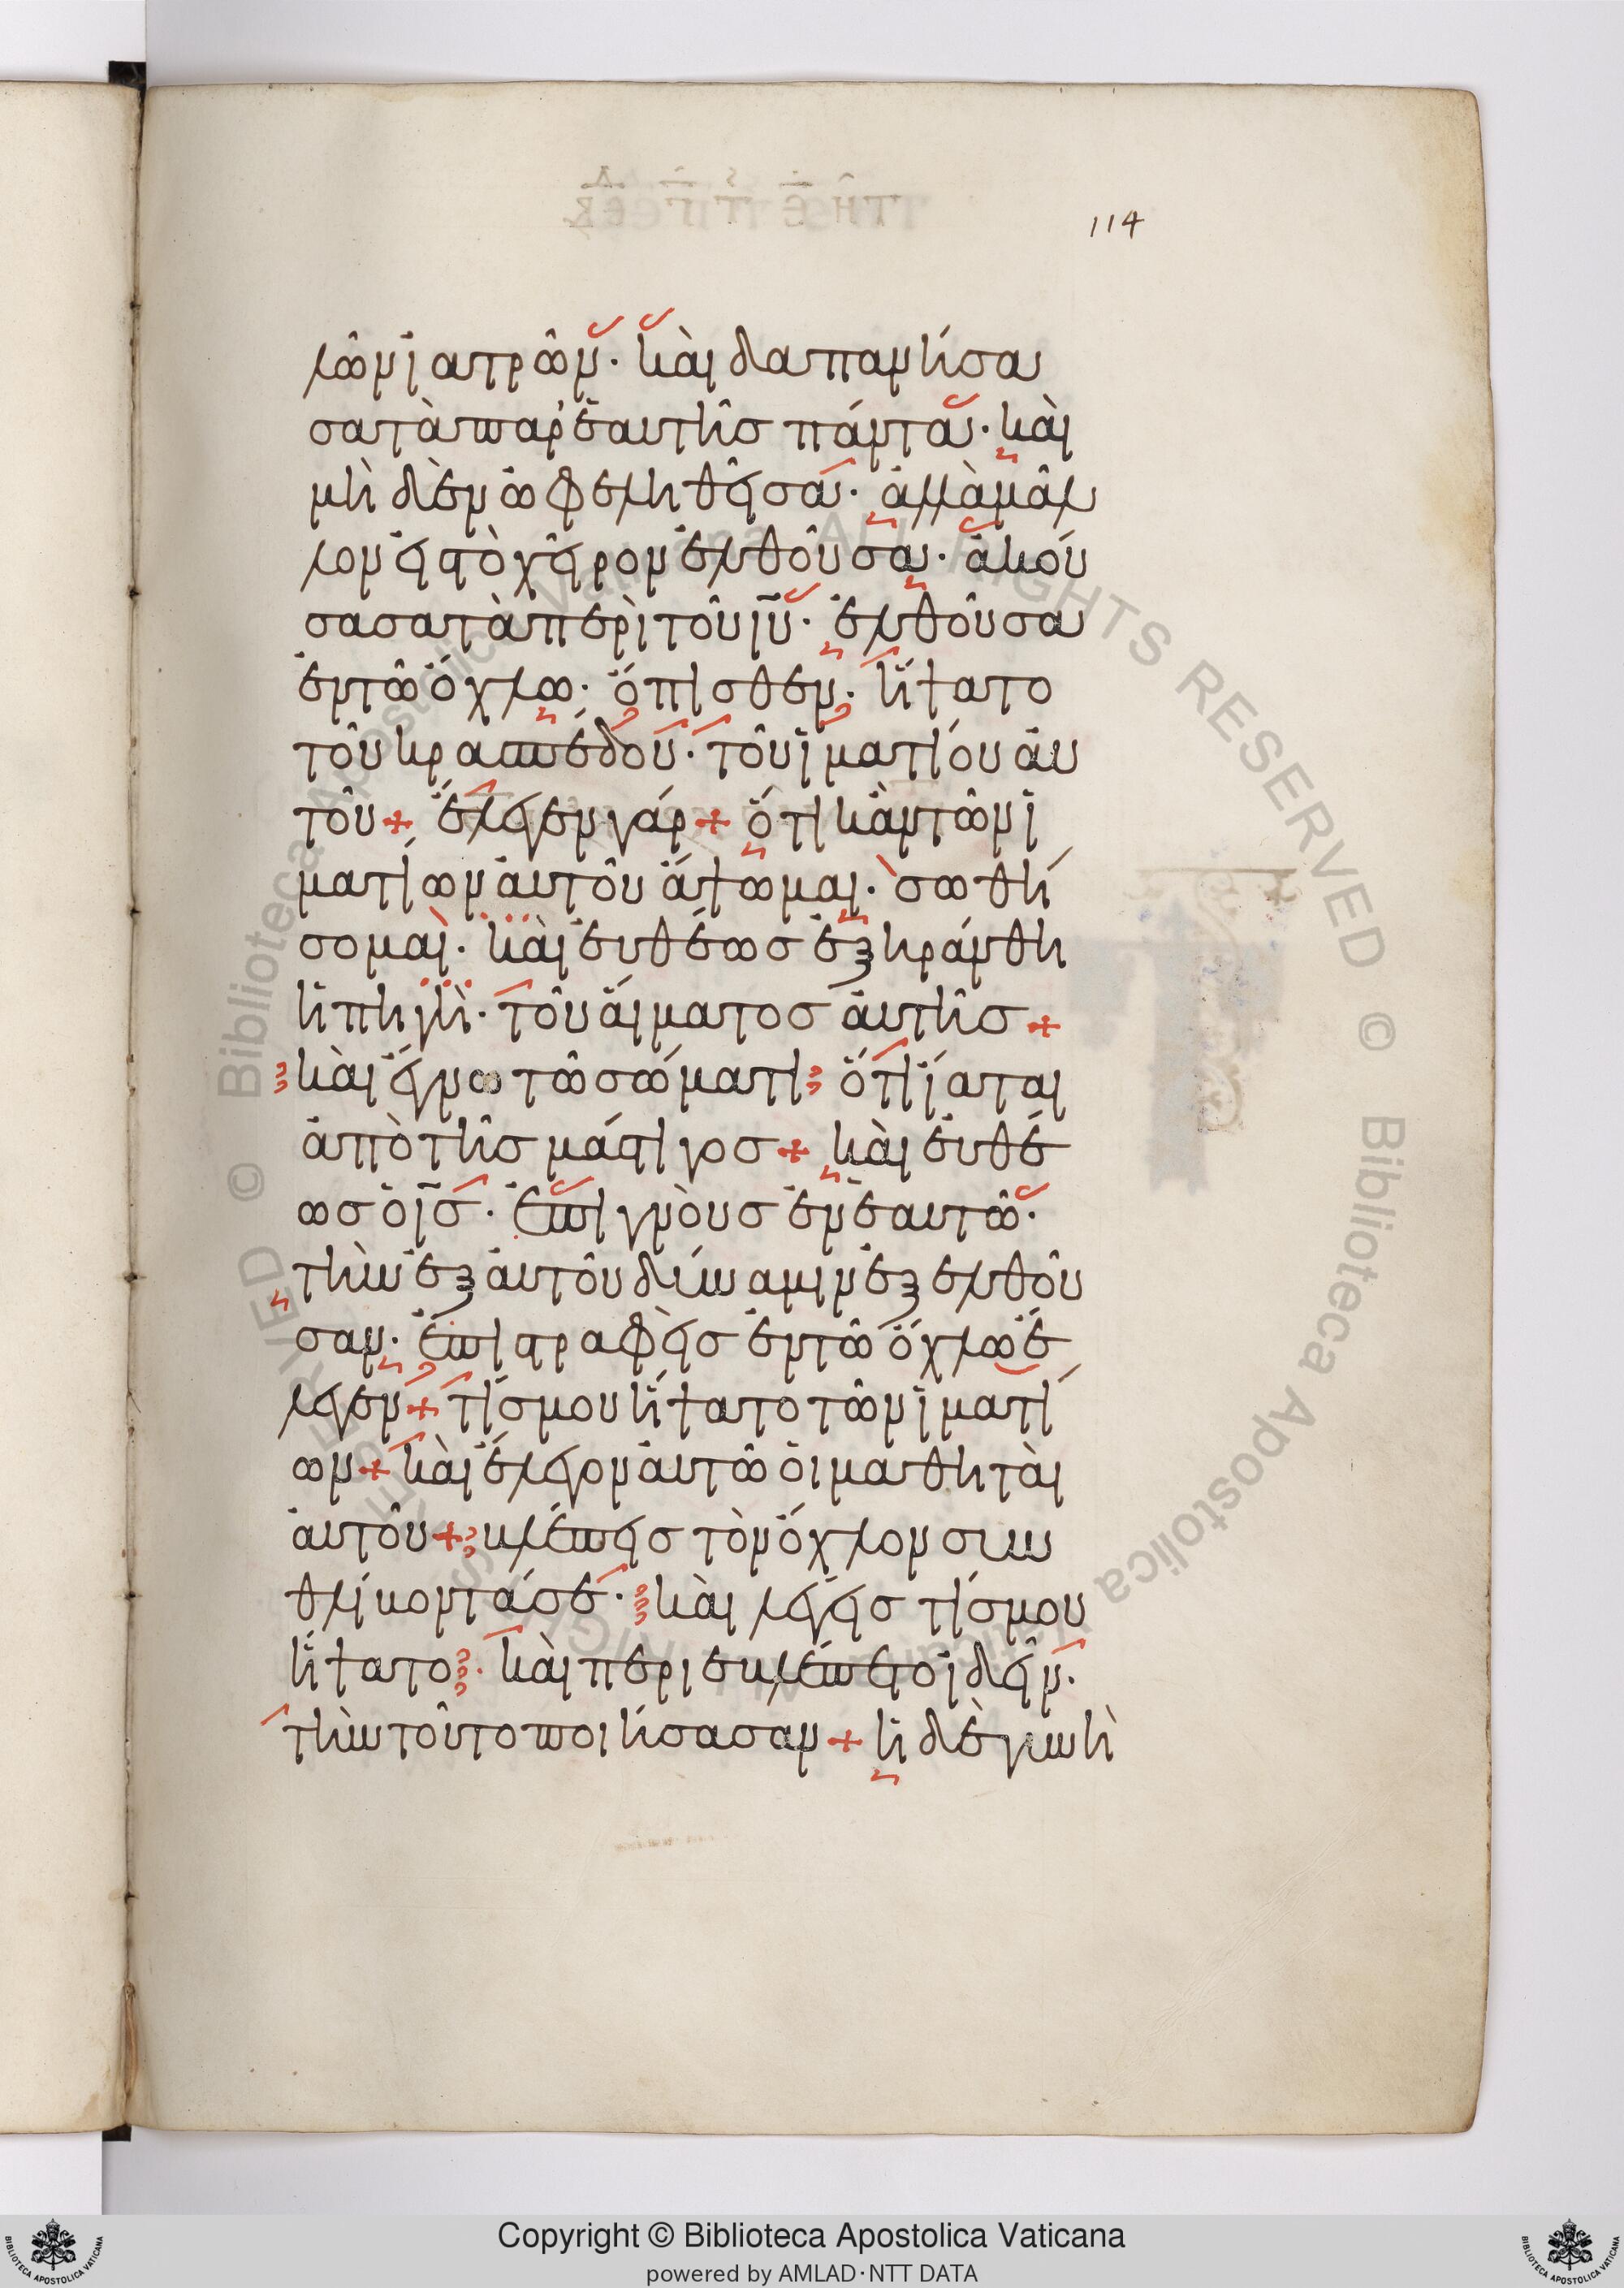 114
λῶν ἰατρῶν· καὶ δαπανήσα
σα τὰ παρ' ἑαυτῆς πάντα· καὶ
μὴ δὲν ὠφεληθεῖσα· ἀλλὰ μᾶλ
λον εἰς τὸ χεῖρον ἐλθοῦσα· ἀκού
σασα τὰ περὶ τοῦ ἰυ· ἐλθοῦσα
ἐν τῶ ὄχλω· ὄπισθεν· ἥψατο
τοῦ κρασπέδου· τοῦ ἱματίου αὐ
τοῦ + ἔλεγεν γάρ + ὅτι κἂν τῶν ἱ
ματίων αὐτοῦ ἅψωμαι· σωθή
σομαι· καὶ εὐθέως ἐξηράνθη
ἡ πηγὴ· τοῦ αἵματος αὐτῆς +
καὶ ἔγνω τῶ σώματι ὅτι ἴαται
ἀπὸ τῆς μάστιγος + καὶ εὐθέ
ως ὁ ις· ἐπιγνοὺς ἐν ἑαυτῶ·
τὴν ἐξ αὐτοῦ δύναμιν ἐξελθοῦ
σαν· ἐπιστραφεὶς ἐν τῶ ὄχλω ἔ
λεγεν + τίς μου ἥψατο τῶν ἱματί
ων + καὶ ἔλεγον αὐτῶ οἱ μαθηταὶ
αὐτοῦ + βλέπεις τὸν ὄχλον συν
θλίβοντά σε· καὶ λέγεις τίς μου
ἥψατο· καὶ περιεβλέπετο ἰδεῖν·
τὴν τοῦτο ποιήσασαν + ἡ δὲ γυνὴ
Copyright © Biblioteca Apostolica Vaticana
powered by AMLAD·NTT DATA